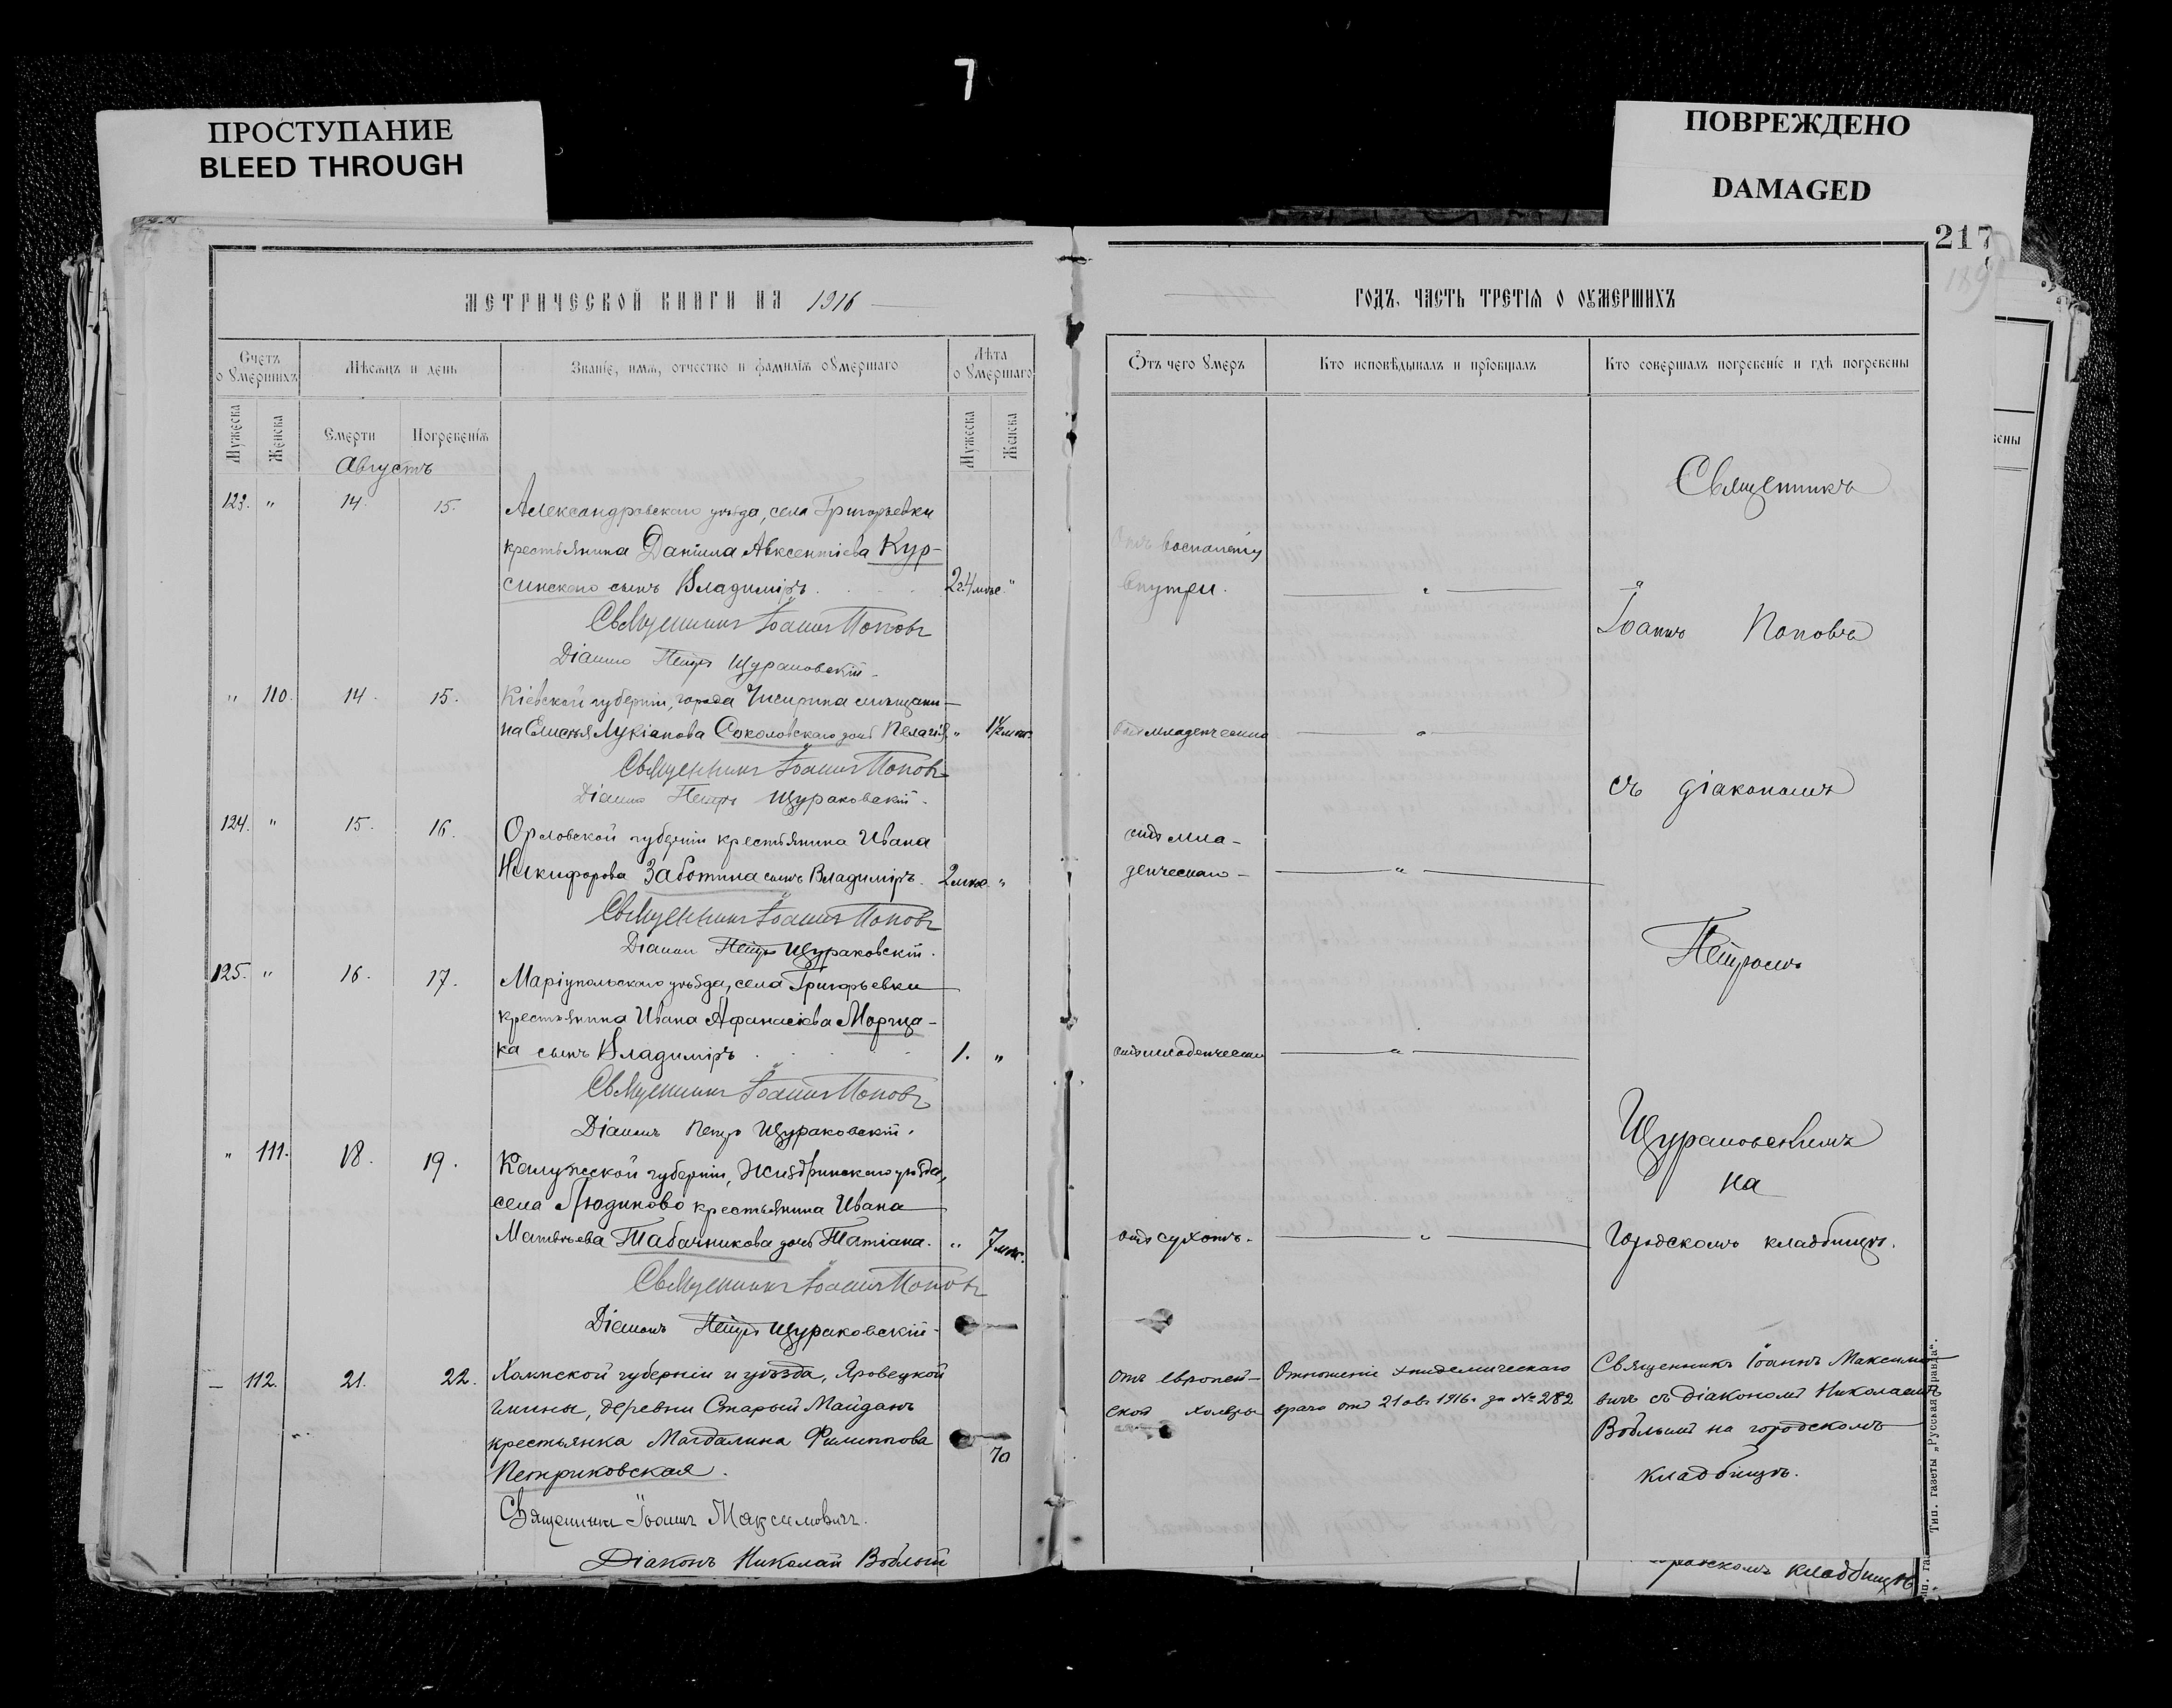 7
ПРОСТУПАНИЕ
BLEED THROUGH
ПОВРЕЖДЕНО
DAMAGED
217
189
МЕТРИЧЕСКОЙ КНИГИ НА 1916
Счетъ оумершихъ
Мѣсяцъ и день
Званїе, имя, отчество и фамилїя оумершаго
Лѣта оумершаго
Мужеска
Женска
Смерти
Погребенїя
Мужеска
Женска
Августъ
123. " 14. 15. Александровскаго уѣзда, села Григорьевки
крестьянина Даніила Авксентіева Кур-
синскаго сынъ Владиміръ. "
Священникъ Іоаннъ Поповъ
Діаконъ Петръ Щураковскій.
" 110. 14. 15. Кіевской губерніи, города Чигирина мѣщани-
на Елисѣя Лукіанова Соколовскаго дочь Пелагія. " 1½ мѣс.
Священникъ Іоаннъ Поповъ
Діаконъ Петръ Щураковскій.
124. " 15. 16. Орловской губерніи крестьянина Ивана
Никифорова Заботина сынъ Владиміръ. 2 мѣс. "
Священникъ Іоаннъ Поповъ
Діаконъ Петръ Щураковскій.
125. " 16. 17. Маріупольскаго уѣзда, села Григорьевки
крестьянина Ивана Афанасіева Моргца-
ка сынъ Владиміръ 1. "
Священникъ Іоаннъ Поповъ
Діаконъ Петръ Щураковскій.
" 111. 18. 19. Калужской губерніи, Жиздринскаго уѣзда,
села Людиново крестьянина Ивана
Матвѣева Табачникова дочь Татіана. " 7 мѣс.
Священникъ Іоаннъ Поповъ
Діаконъ Петръ Щураковскій.
— 112. 21. 22. Холмской губерніи и уѣзда, Яровецкой
гмины, деревни Старый Майданъ
крестьянка Магдалина Филиппова 70
Петриковская.
Священникъ Іоаннъ Максимовичъ.
Діаконъ Николай Воблый
ГОДЪ, ЧАСТЬ ТРЕТІЯ О ОУМЕРШИХЪ
Ѿтъ чего оумеръ
Кто исповѣдывалъ и прїобщалъ
Кто совершалъ погребенїе и гдѣ погребены
Священникъ
Отъ воспаленія
внутрен. "
Іоаннъ Поповъ
отъ младенческой "
съ діакономъ
отъ мла-
денческаго - "
Петромъ
отъ младенческой "
Щураковскимъ
на
отъ сухотъ. " городскомъ кладбищѣ.
Отъ европей-
ской холеры
Отношеніе эпидемическаго
врача отъ 21 авг. 1916 г. за № 282
Священникъ Іоаннъ Максимо-
вичъ съ діакономъ Николаемъ
Воблымъ на городскомъ
кладбищѣ.
Тип. газеты „Русская правда“.
городскомъ кладбищѣ